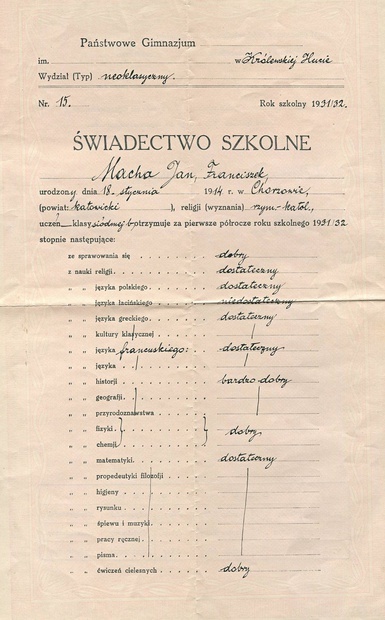 Państwowe Gimnazjum
im. w Królewskiej Hucie
Wydział (Typ) neoklasyczny.
Nr. 15. Rok szkolny 1931/32.
ŚWIADECTWO SZKOLNE
Macha Jan, Franciszek,
urodzony dnia 18. stycznia 1914 r. w Chorzowie,
(powiat: katowicki ), religji (wyznania) rzym.-katol.,
uczeń klasy siódmej b otrzymuje za pierwsze półrocze roku szkolnego 1931/32
stopnie następujące:
ze sprawowania się dobry
z nauki religji. dostateczny
„ „ języka polskiego. dostateczny
„ „ języka łacińskiego niedostateczny
„ „ języka greckiego. dostateczny
„ „ kultury klasycznej
„ „ języka francuskiego: dostateczny
„ „ języka
„ „ historji bardzo dobry
„ „ geografji.
„ „ przyrodoznawstwa
„ „ fizyki dobry
„ „ chemji
„ „ matematyki. dostateczny
„ „ propedeutyki filozofji
„ „ higjeny
„ „ rysunku
„ „ śpiewu i muzyki
„ „ pracy ręcznej
„ „ pisma
„ „ ćwiczeń cielesnych dobry